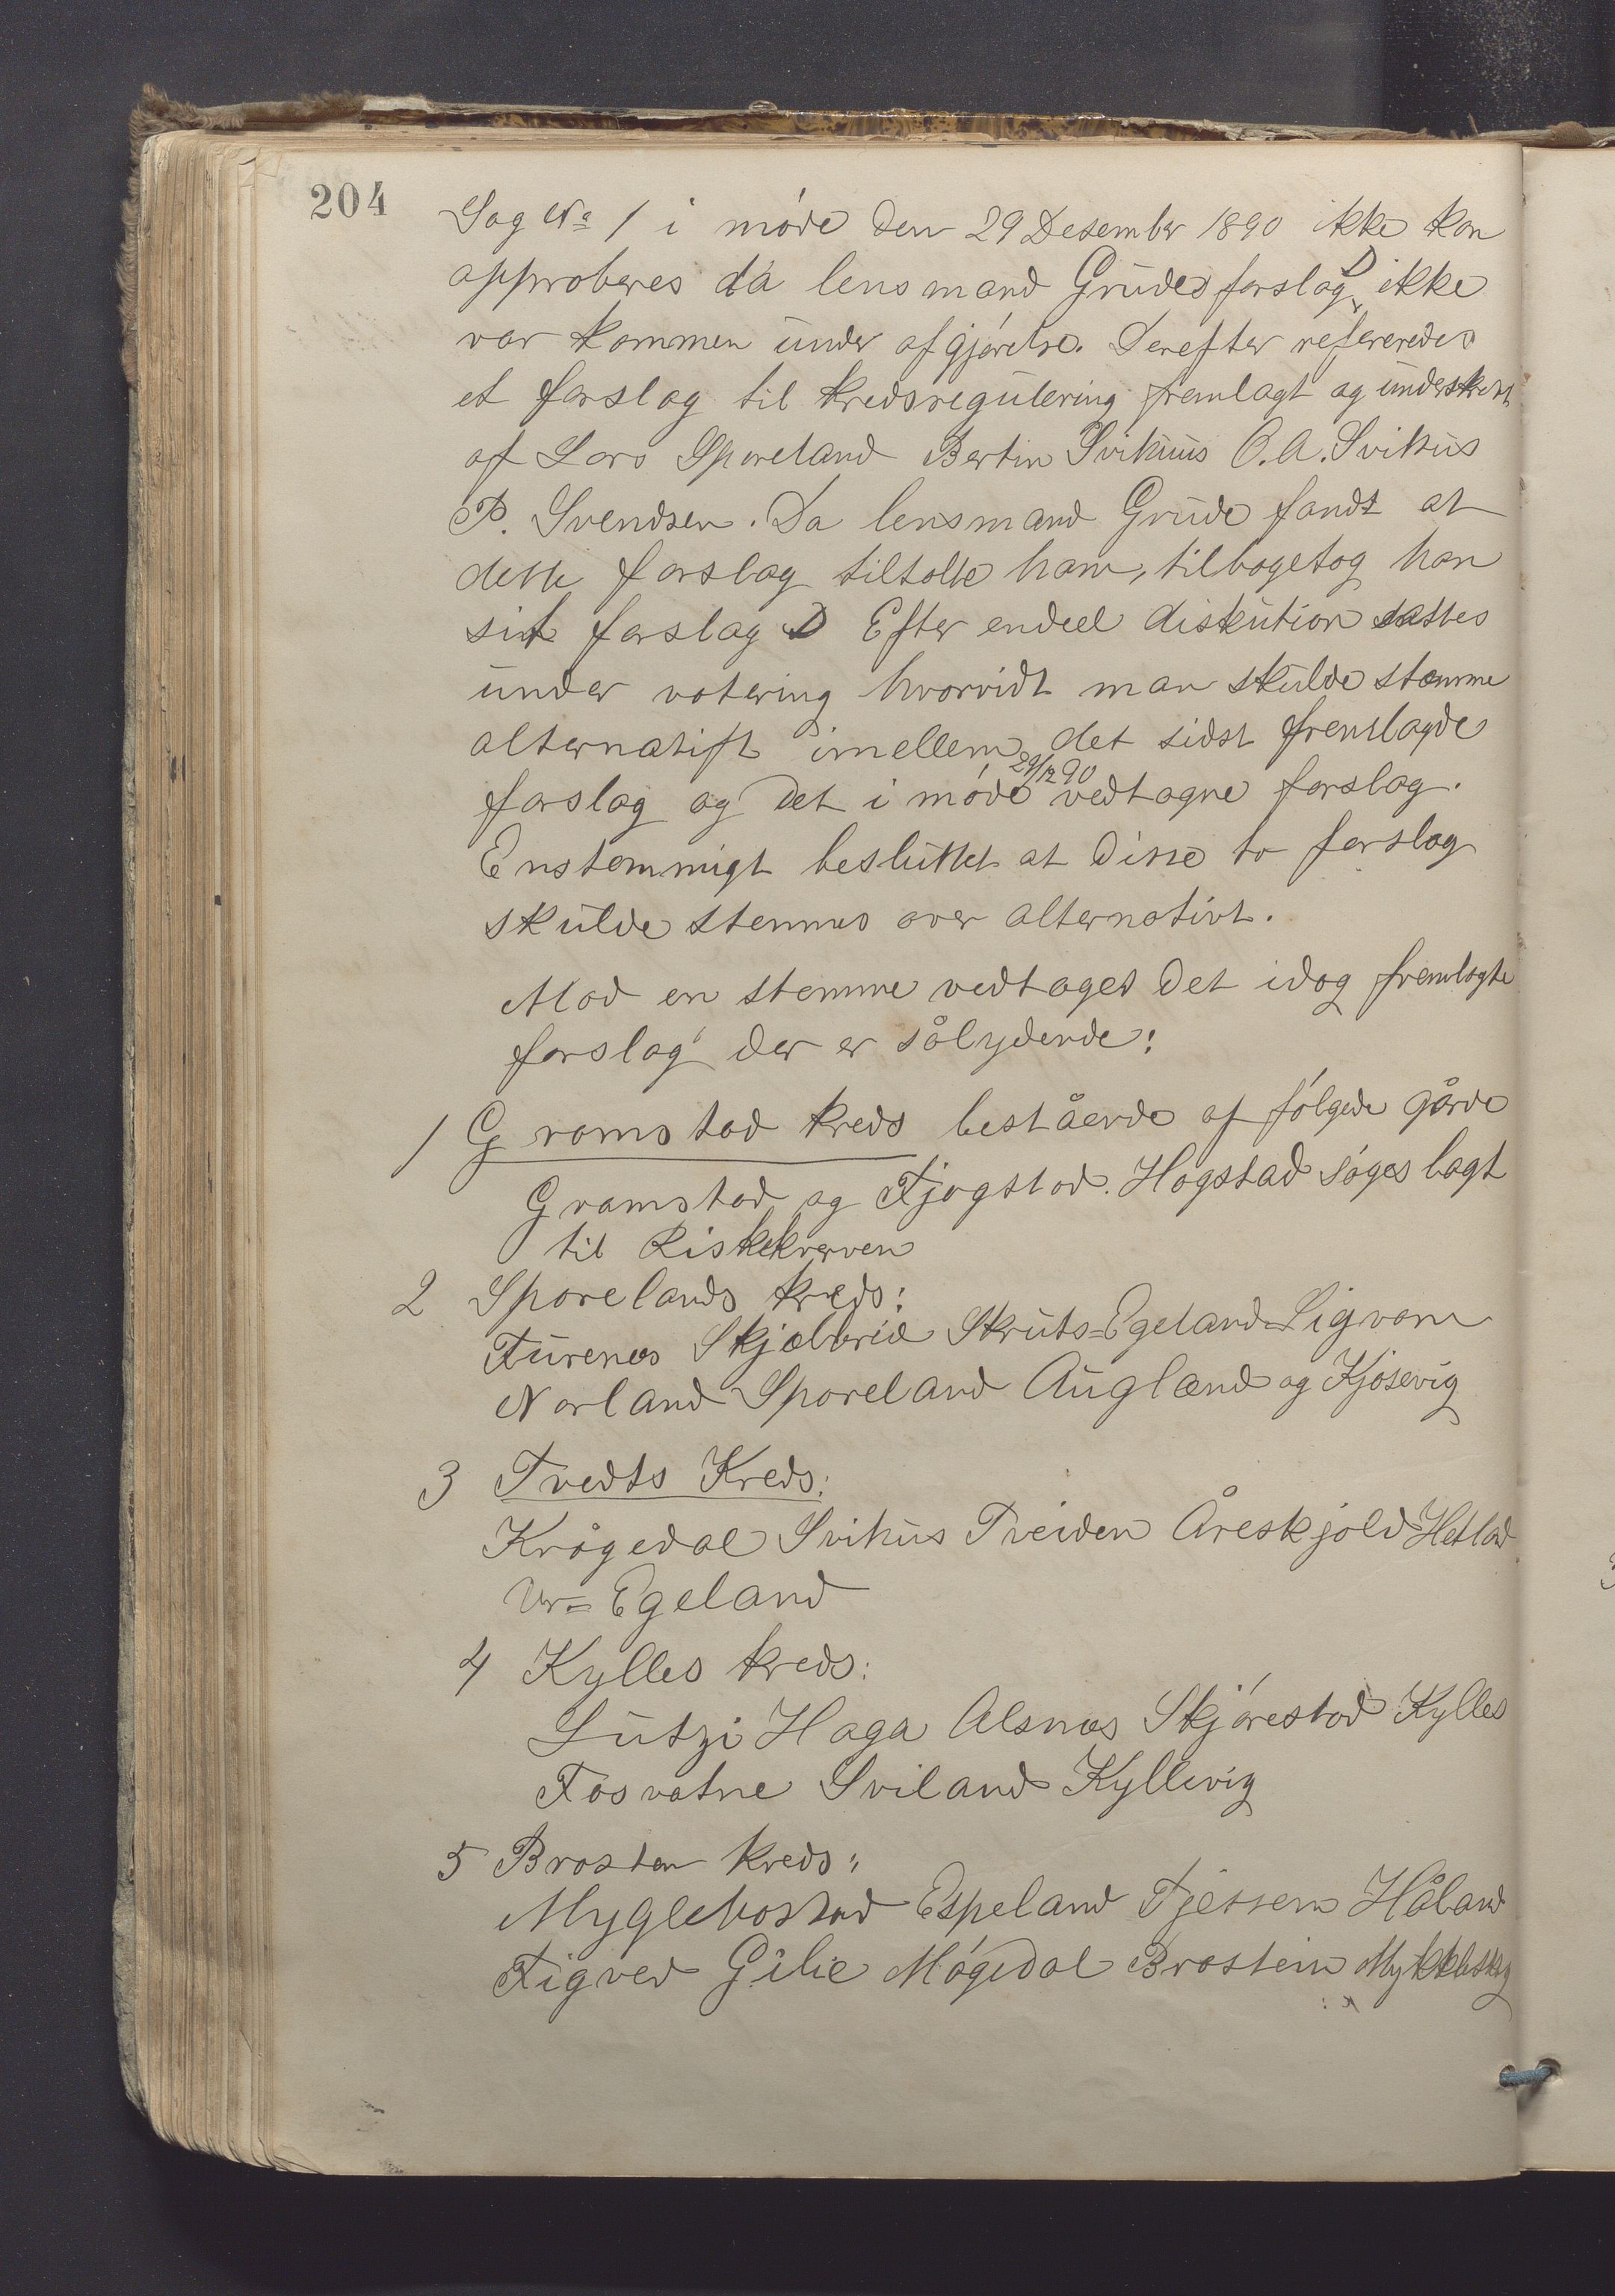 204
Sag No 1 i møde den 29 Desember 1890 ikke kan
approberes da lensmand Grudes forslag D ikke
var kommen under afgjørelse. Derefter refereredes
et forslag til kredsregulering fremlagt og underskrevet
af Lars Sporeland Bertin Svihus O. A. Svihus
P. Svendsen. Da lensmand Grude fandt at
dette forslag tiltalte ham, tilbagetog han
sit forslag D Efter endeel diskution sattes
under votering hvorvidt man skulde stemme
alternatift imellem det sidst fremlagde
forslag og det i møde 29/12 90 vedtagne forslag.
Enstemmigt besluttet at disse to forslag
skulde stemmes over alternativt.
Mod en stemme vedtaget det idag fremlagte
forslag der er sålydende:
1 Gramstad kreds bestående af følgede gårde
Gramstad og Fjogstad. Hogstad søges lagt
til Riskekverven
2 Sporelands kreds:
Furenes Skjælbrid Skruts=Egeland Ligvam
Norland Sporeland Augland og Kjosevig
3 Tvedts Kreds:
Krågedal Svihus Tveiden Åreskjold Hetland
Ur=Egeland
4 Kylles kreds:
Lutzi Haga Alsnes Skjørestad Kylles
Fosvatne Sviland Kyllevig
5 Brosten kreds:
Myglebostad Espeland Fjessem Håland
Figved Gilie Møgedal Brostein